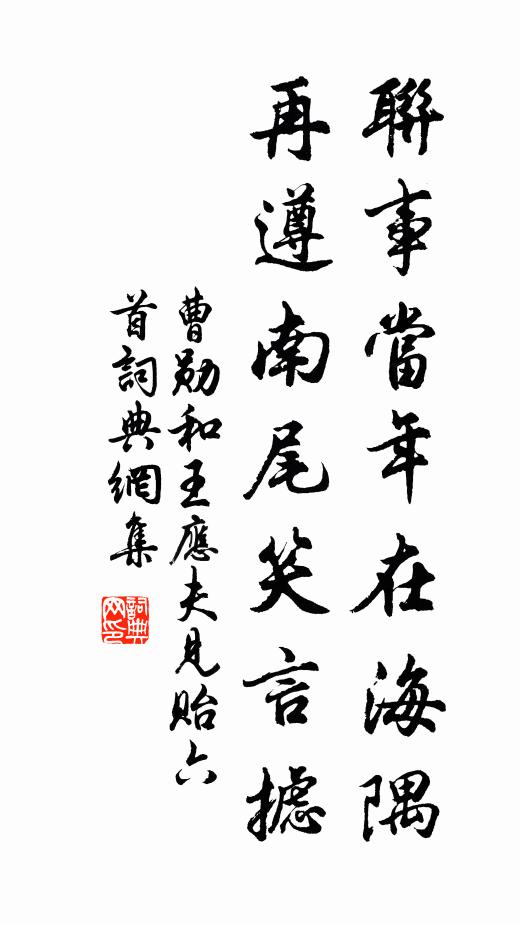 聯事當年在海隅
再遵南尾笑言攄
曹勛和王應夫見貽六
首詞典網集
詞典網印